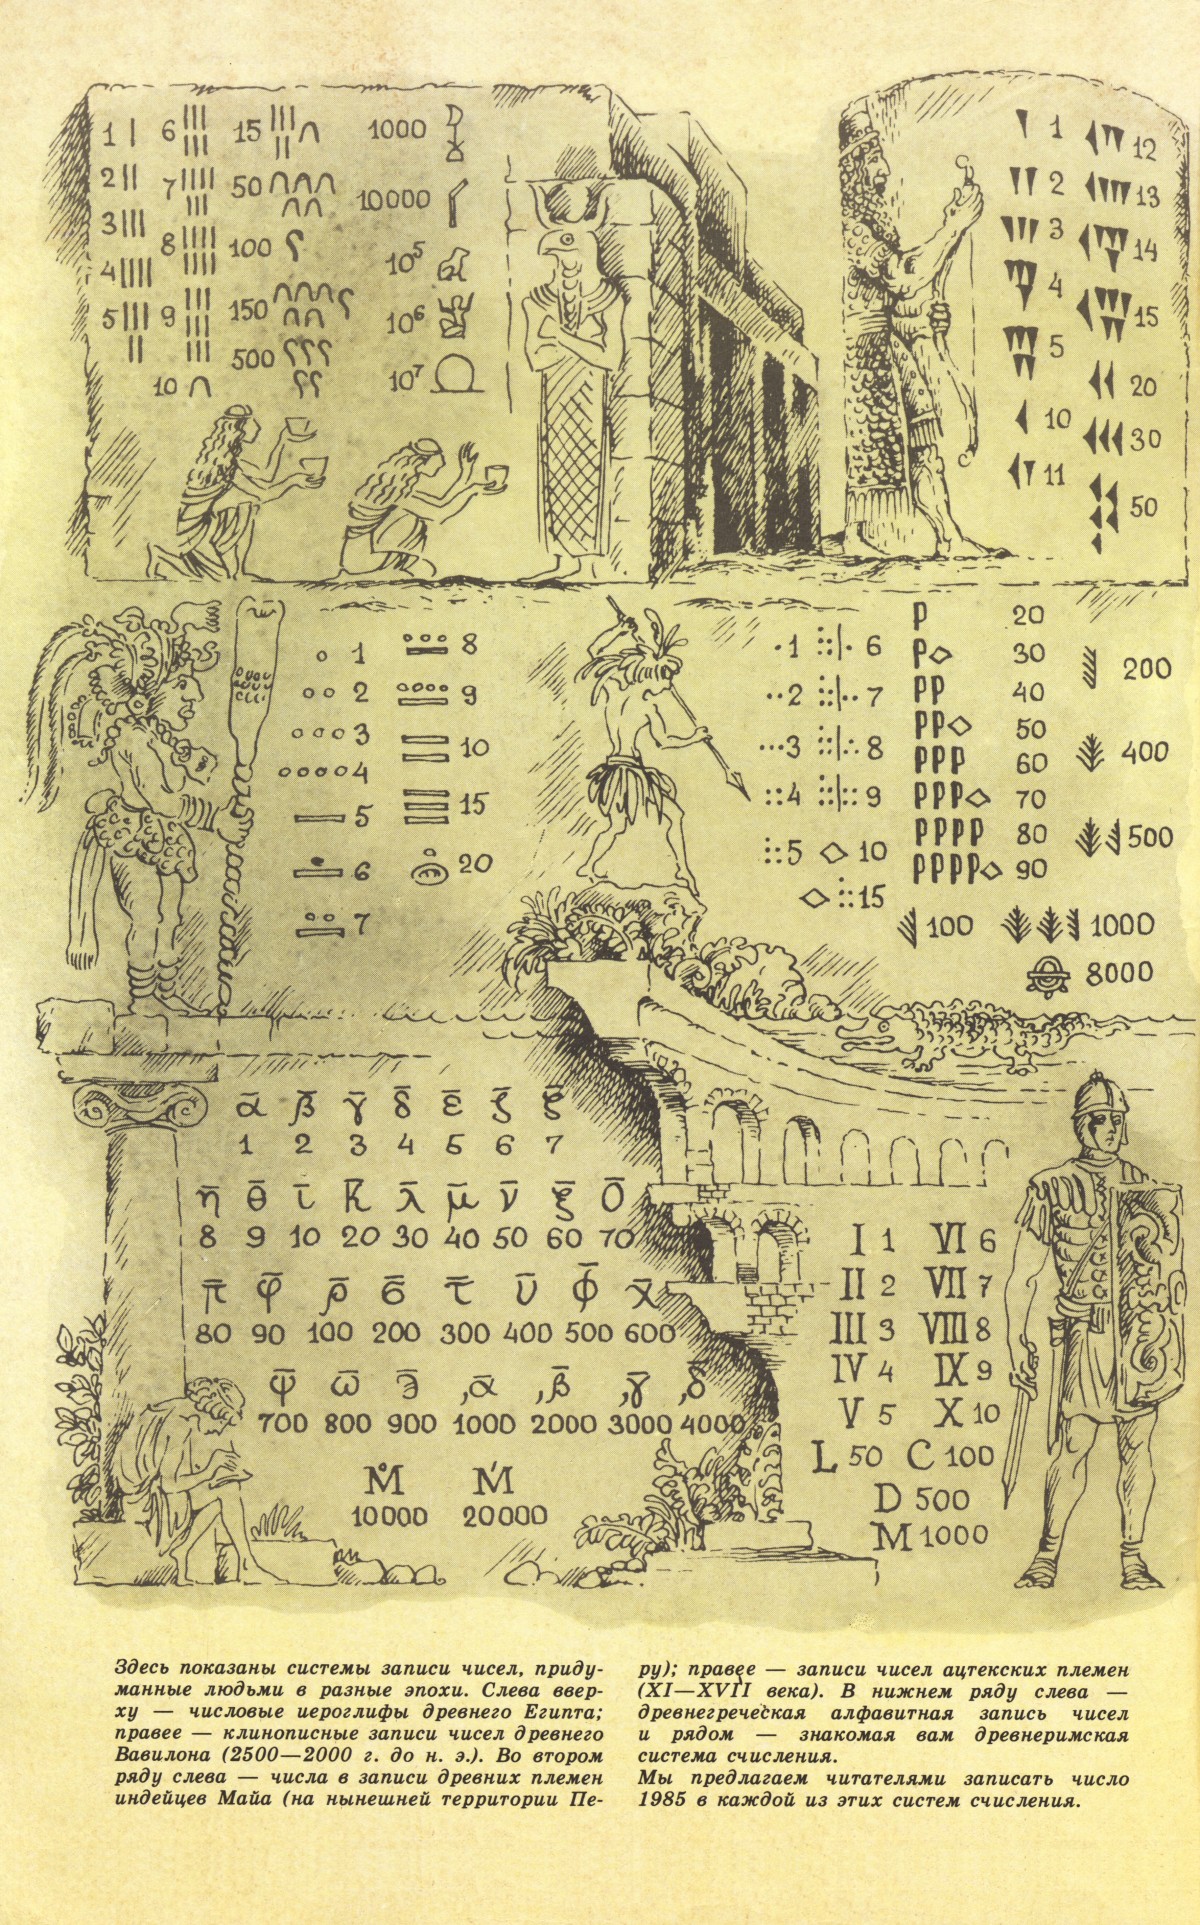 1 6 15 1000
2 7 50 10000
3 8 100 10⁵
4 9 150 10⁶
5 10 500 10⁷
1 12
2 13
3 14
4 15
5 20
10 30
11 50
1 8
2 9
3 10
4 15
5 20
6
7
1 6
2 7
3 8
4 9
5 10
15
P 20
P◇ 30
PP 40
PP◇ 50
PPP 60
PPP◇ 70
PPPP 80
PPPP◇ 90
200
400
500
100 1000
8000
ᾱ β̄ γ̄ δ̄ ε̄ ζ̄ ξ̄
1 2 3 4 5 6 7
η̄ θ̄ ῑ κ̄ λ̄ μ̄ ν̄ ξ̄ Ō
8 9 10 20 30 40 50 60 70
π̄ φ̄ ρ̄ σ̄ τ̄ ῡ Φ̄ χ̄
80 90 100 200 300 400 500 600
ψ̄ ω̄ э̄ ,ᾱ ,β̄ ,γ̄ ,δ̄
700 800 900 1000 2000 3000 4000
M̊ Ḿ
10000 20000
I 1 VI 6
II 2 VII 7
III 3 VIII 8
IV 4 IX 9
V 5 X 10
L 50 C 100
D 500
M 1000
Здесь показаны системы записи чисел, приду-
манные людьми в разные эпохи. Слева ввер-
ху — числовые иероглифы древнего Египта;
правее — клинописные записи чисел древнего
Вавилона (2500—2000 г. до н. э.). Во втором
ряду слева — числа в записи древних племен
индейцев Майа (на нынешней территории Пе-
ру); правее — записи чисел ацтекских племен
(XI—XVII века). В нижнем ряду слева —
древнегреческая алфавитная запись чисел
и рядом — знакомая вам древнеримская
система счисления.
Мы предлагаем читателями записать число
1985 в каждой из этих систем счисления.